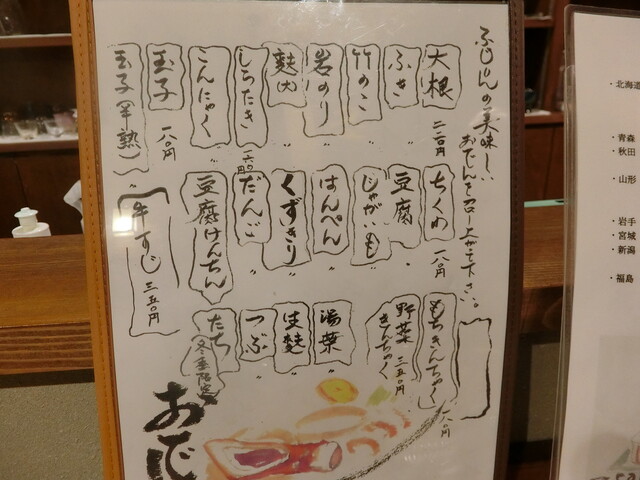 ふじりんの美味しい
おでんを召し上がって下さい。
大根 二二〇円
ふき 〃
竹のこ 〃
岩のり 〃
麩(大) 〃
しらたき 一六〇円
こんにゃく 〃
玉子 一八〇円
玉子(半熟) 〃
ちくわ 一八〇円
豆腐 〃
じゃがいも 〃
はんぺん 〃
くずきり 〃
だんご 〃
豆腐けんちん 〃
牛すじ 三五〇円
もちきんちゃく 一八〇円
野菜きんちゃく 二五〇円
湯葉 〃
生麩 〃
つぶ 〃
たち 冬季限定
おで
・北海道
・青森
・秋田
・山形
・岩手
・宮城
・新潟
・福島